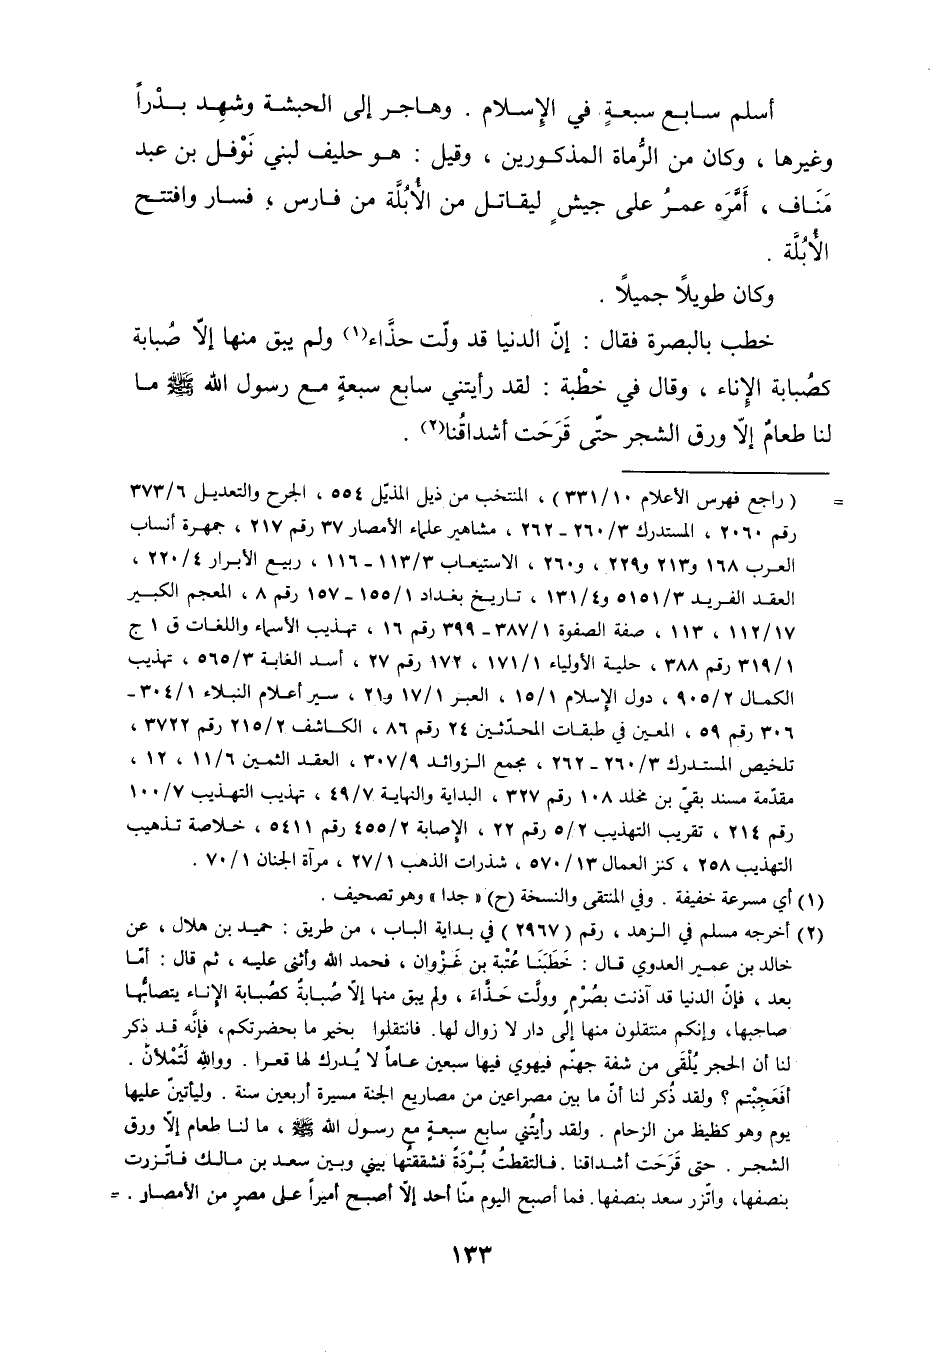 أسلم سابع سبعةٍ في الإسلام . وهاجر إلى الحبشة وشهِد بدْراً
وغيرها ، وكان من الرُّماة المذكورين ، وقيل : هو حليف لبني نَوْفل بن عبد
مَنَاف ، أَمَّرَه عمرُ على جيشٍ ليقاتل من الأُبُلَّة من فارس ، فسار وافتتح
الأُبُلَّة .
وكان طويلًا جميلًا .
خطب بالبصرة فقال : إنّ الدنيا قد ولّت حذَّاء(١) ولم يبق منها إلّا صُبابة
كصُبابة الإناء ، وقال في خطْبة : لقد رأيتني سابع سبعةٍ مع رسول الله ﷺ ما
لنا طعامٌ إلّا ورق الشجر حتّى قَرَحَت أشداقُنا(٢) .
= ( راجع فهرس الأعلام ٣٣١/١٠ ) ، المنتخب من ذيل المذيّل ٥٥٤ ، الجرح والتعديل ٣٧٣/٦
رقم ٢٠٦٠ ، المستدرك ٢٦٠/٣ ـ ٢٦٢ ، مشاهير علماء الأمصار ٣٧ رقم ٢١٧ ، جمهرة أنساب
العرب ١٦٨ و٢١٣ و٢٢٩ ، و٢٦٠ ، الاستيعاب ١١٣/٣ ـ ١١٦ ، ربيع الأبرار ٢٢٠/٤ ،
العقد الفريد ٥١٥١/٣ و١٣١/٤ ، تاريخ بغداد ١٥٥/١ ـ ١٥٧ رقم ٨ ، المعجم الكبير
١١٢/١٧ ، ١١٣ ، صفة الصفوة ٣٨٧/١ ـ ٣٩٩ رقم ١٦ ، تهذيب الأسماء واللغات ق ١ ج
٣١٩/١ رقم ٣٨٨ ، حلية الأولياء ١٧١/١ ، ١٧٢ رقم ٢٧ ، أسد الغابة ٥٦٥/٣ ، تهذيب
الكمال ٩٠٥/٢ ، دول الإسلام ١٥/١ ، العبر ١٧/١ و٢١ ، سير أعلام النبلاء ٣٠٤/١ ـ
٣٠٦ رقم ٥٩ ، المعين في طبقات المحدّثين ٢٤ رقم ٨٦ ، الكاشف ٢١٥/٢ رقم ٣٧٢٢ ،
تلخيص المستدرك ٢٦٠/٣ ـ ٢٦٢ ، مجمع الزوائد ٣٠٧/٩ ، العقد الثمين ١١/٦ ، ١٢ ،
مقدّمة مسند بقيّ بن مخلد ١٠٨ رقم ٣٢٧ ، البداية والنهاية ٤٩/٧ ، تهذيب التهذيب ١٠٠/٧
رقم ٢١٤ ، تقريب التهذيب ٥/٢ رقم ٢٢ ، الإصابة ٤٥٥/٢ رقم ٥٤١١ ، خلاصة تذهيب
التهذيب ٢٥٨ ، كنز العمال ٥٧٠/١٣ ، شذرات الذهب ٢٧/١ ، مرآة الجنان ٧٠/١ .
(١) أي مسرعة خفيفة . وفي المنتقى والنسخة (ح) « جدا » وهو تصحيف .
(٢) أخرجه مسلم في الزهد ، رقم (٢٩٦٧) في بداية الباب ، من طريق : حميد بن هلال ، عن
خالد بن عمير العدوي قال : خَطَبَنَا عُتْبة بن غَزْوان ، فحمد الله وأثنى عليه ، ثم قال : أمّا
بعد ، فإنّ الدنيا قد آذنت بصُرْمٍ وولَّت حَذَّاءَ ، ولم يبق منها إلّا صُبابةٌ كصُبابة الإناء يتصابُّها
صاحبها، وإنكم منتقلون منها إلى دار لا زوال لها. فانتقلوا بخير ما بحضرتكم، فإنَّه قد ذكر
لنا أن الحجر يُلْقَى من شفة جهنّم فيهوي فيها سبعين عاماً لا يُدرك لها قعرا . ووالله لَتُمْلأنّ .
أفَعَجِبْتم ؟ ولقد ذُكر لنا أنّ ما بين مصراعين من مصاريع الجنة مسيرة أربعين سنة . وليأتينّ عليها
يوم وهو كظيظ من الزحام . ولقد رأيتُني سابع سبعةٍ مع رسول الله ﷺ ، ما لنا طعام إلّا ورق
الشجر . حتى قَرَحَت أشداقنا . فالتقطتُ بُرْدَةً فشققتُها بيني وبين سعد بن مالك فاتّزرت
بنصفها، واتّزر سعد بنصفها. فما أصبح اليوم منّا أحد إلّا أصبح أميراً على مصرٍ من الأمصار . =
١٣٣